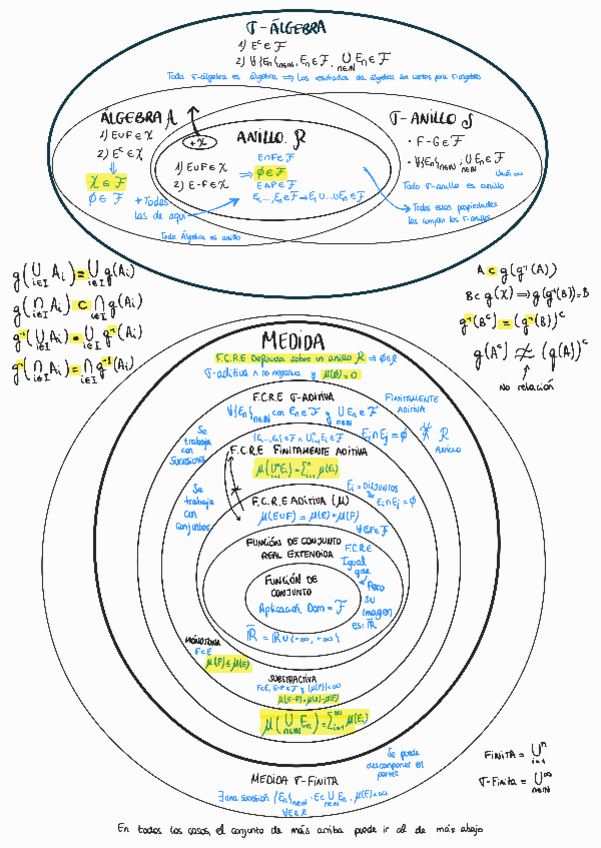 σ-ÁLGEBRA
1) Eᶜ ∈ F
2) ∀{Eₙ}ₙ∈ℕ, Eₙ ∈ F, ∪ₙ∈ℕ Eₙ ∈ F
Toda σ-álgebra es álgebra ⟹ Los resultados de álgebra son ciertos para σ-álgebras
ÁLGEBRA A
1) E∪F ∈ X
2) Eᶜ ∈ X
⇓
X ∈ F
∅ ∈ F
+ X
ANILLO. R
1) E∪F ∈ X
2) E-F ∈ X
E∩F ∈ F
⟹ ∅ ∈ F
E∆F ∈ F
E₁,...,Eₙ ∈ F ⟹ E₁∪...∪Eₙ ∈ F
+ Todas
las de aquí
Toda Álgebra es anillo
σ-ANILLO S
· F-G ∈ F
· ∀{Eₙ}ₙ∈ℕ, ∪ₙ∈ℕ Eₙ ∈ F
Todo σ-anillo es anillo
Todas estas propiedades
las cumplen los σ-anillos
g(∪ᵢ∈I Aᵢ) = ∪ᵢ∈I g(Aᵢ)
g(∩ᵢ∈I Aᵢ) ⊂ ∩ᵢ∈I g(Aᵢ)
g⁻¹(∪ᵢ∈I Aᵢ) = ∪ᵢ∈I g⁻¹(Aᵢ)
g⁻¹(∩ᵢ∈I Aᵢ) = ∩ᵢ∈I g⁻¹(Aᵢ)
A ⊂ g(g⁻¹(A))
B ⊂ g(X) ⟹ g(g⁻¹(B)) = B
g⁻¹(Bᶜ) = (g⁻¹(B))ᶜ
g(Aᶜ) ≁ (g(A))ᶜ
No relación
MEDIDA
F.C.R.E Definida sobre un anillo R ⟹ ∅ ∈ R
σ-aditiva ∧ no negativa y μ(∅) = 0
F.C.R.E σ-ADITIVA
∀{Eₙ}ₙ∈ℕ con Eₙ ∈ F y ∪Eₙ ∈ F
FINITAMENTE
ADITIVA
Se
trabaja
con
sucesiones
Eᵢ∩Eⱼ = ∅
R
ANILLO
F.C.R.E FINITAMENTE ADITIVA
μ(∪ⁿᵢ₌₁ Eᵢ) = Σⁿᵢ₌₁ μ(Eᵢ)
Se
trabaja
con
conjuntos
Eᵢ = DISJUNTOS
Eᵢ∩Eⱼ = ∅
F.C.R.E ADITIVA (μ)
μ(E∪F) = μ(E) + μ(F)
∀E,F ∈ F
FUNCIÓN DE CONJUNTO
REAL EXTENDIDA
F.C.R.E
Igual
que
Pero
su
imagen
es: ℝ̅
FUNCIÓN DE
CONJUNTO
Aplicación Dom = F
ℝ̅ = ℝ∪{-∞, +∞}
MONÓTONA
F⊂E
μ(F) ≤ μ(E)
SUBSTRACTIVA
F⊂E, E-F ∈ F y |μ(F)| < ∞
μ(E-F) = μ(E) - μ(F)
μ(∪ₙ∈ℕ Eₙ) = Σ^∞ᵢ₌₁ μ(Eᵢ)
Se puede
descomponer el
partes
MEDIDA σ-FINITA
∃ una sucesión {Eₙ}ₙ∈ℕ · E ⊂ ∪ₙ∈ℕ Eₙ, μ(Eₙ) < ∞
∀E ∈ R
FINITA = ∪ⁿᵢ₌₁
σ-Finita = ∪^∞ₙ∈ℕ
En todos los casos, el conjunto de más arriba puede ir al de más abajo